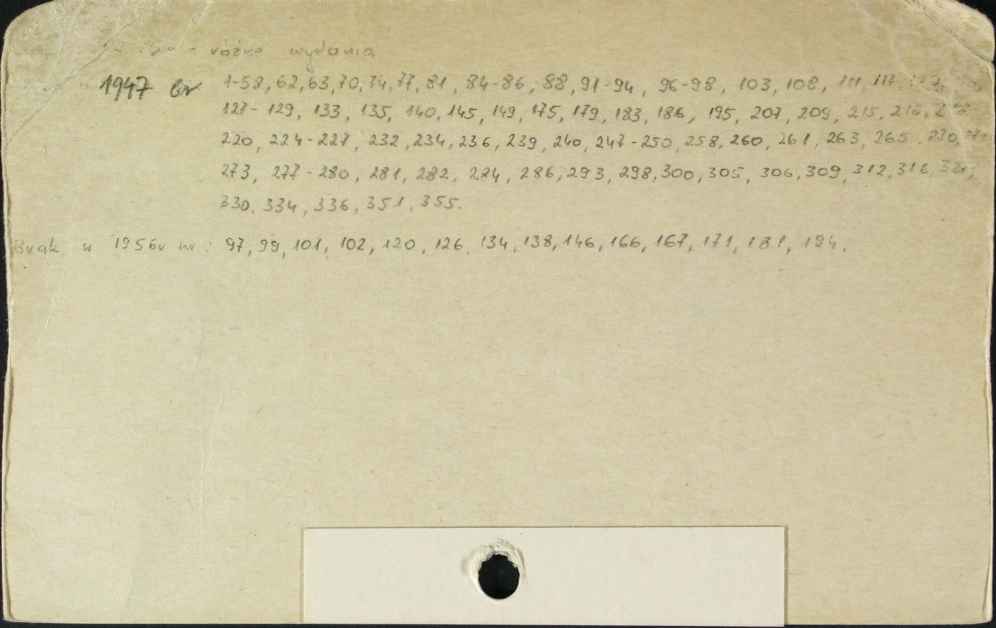 - różne wydania
1947 br 1-58, 62, 63, 70, 74, 77, 81, 84-86, 88, 91-94, 96-98, 103, 108, 111, 117,
127-129, 133, 135, 140, 145, 149, 175, 179, 183, 186, 195, 207, 209, 215, 216,
220, 224-227, 232, 234, 236, 239, 240, 247-250, 258, 260, 261, 263, 265, 270,
273, 277-280, 281, 282, 284, 286, 293, 298, 300, 305, 306, 309, 312, 316,
330, 334, 336, 351, 355.
Brak u 1956r nr: 97, 99, 101, 102, 120, 126, 134, 138, 146, 166, 167, 171, 181, 194.